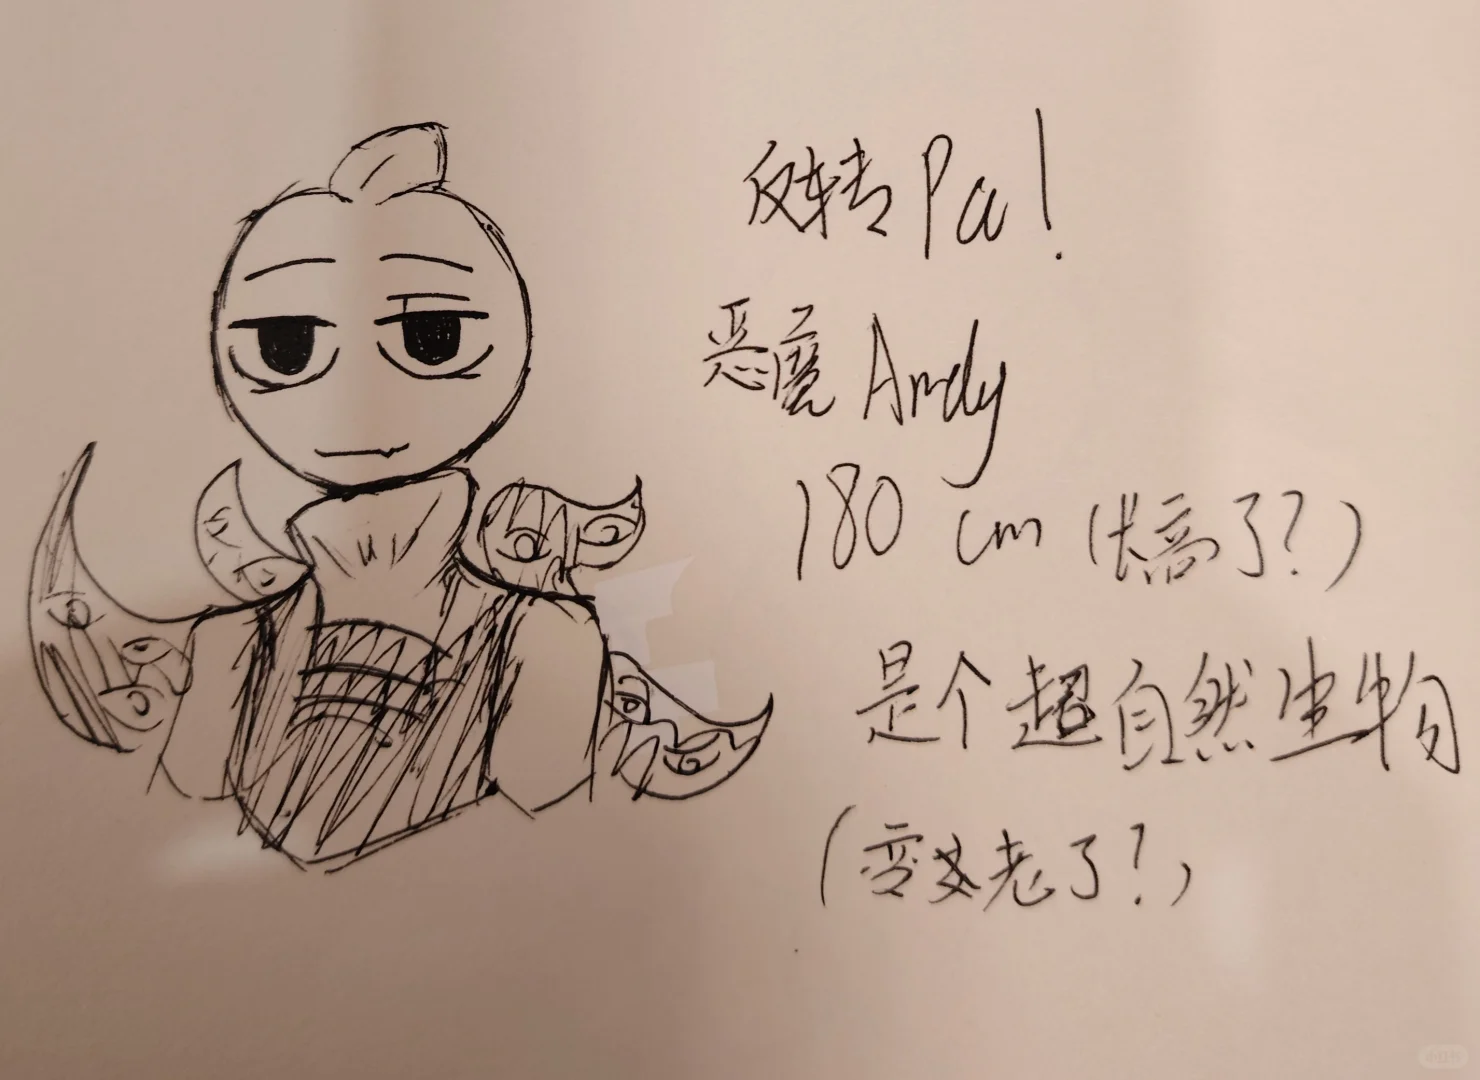 反转Pa!
恶魔Andy
180cm(太高了?)
是个超自然生物
(变老了?)